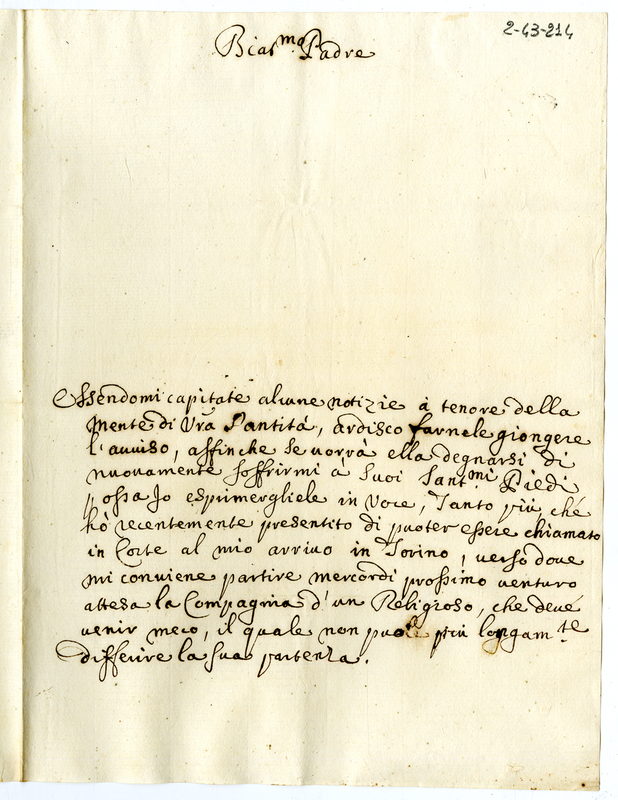 2-43-214
Bias.mo Padre
Essendomi capitate alcune notizie à tenore della
Mente di Vrã Santità, ardisco farnele giongere
l'auuiso, affinche se uorrà ella degnarsi di
nuouamente soffrirmi à Suoi Sant.mi Piedi
possa Jo esprimergliele in Voce, Tanto più, ché
hò recentemente presentito di puoter essere chiamato
in Corte al mio arriuo in Torino, uerso doue
mi conuiene partire mercordì prossimo uenturo
attesa la Compagnia d'un Religioso, che deue
uenir meco, il quale non puole più longam.te
differire la sua partenza.